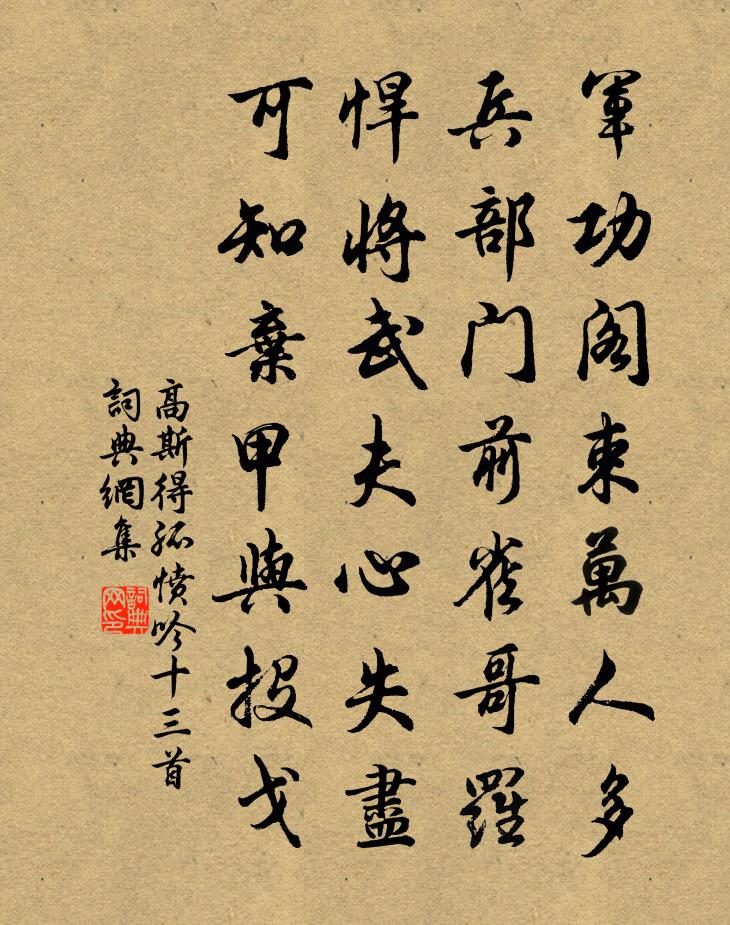 軍功閣束萬人多
兵部門前雀哥羅
悍將武夫心失盡
可知棄甲與投戈
高斯得孤憤吟十三首
詞典網集
詞典
网印